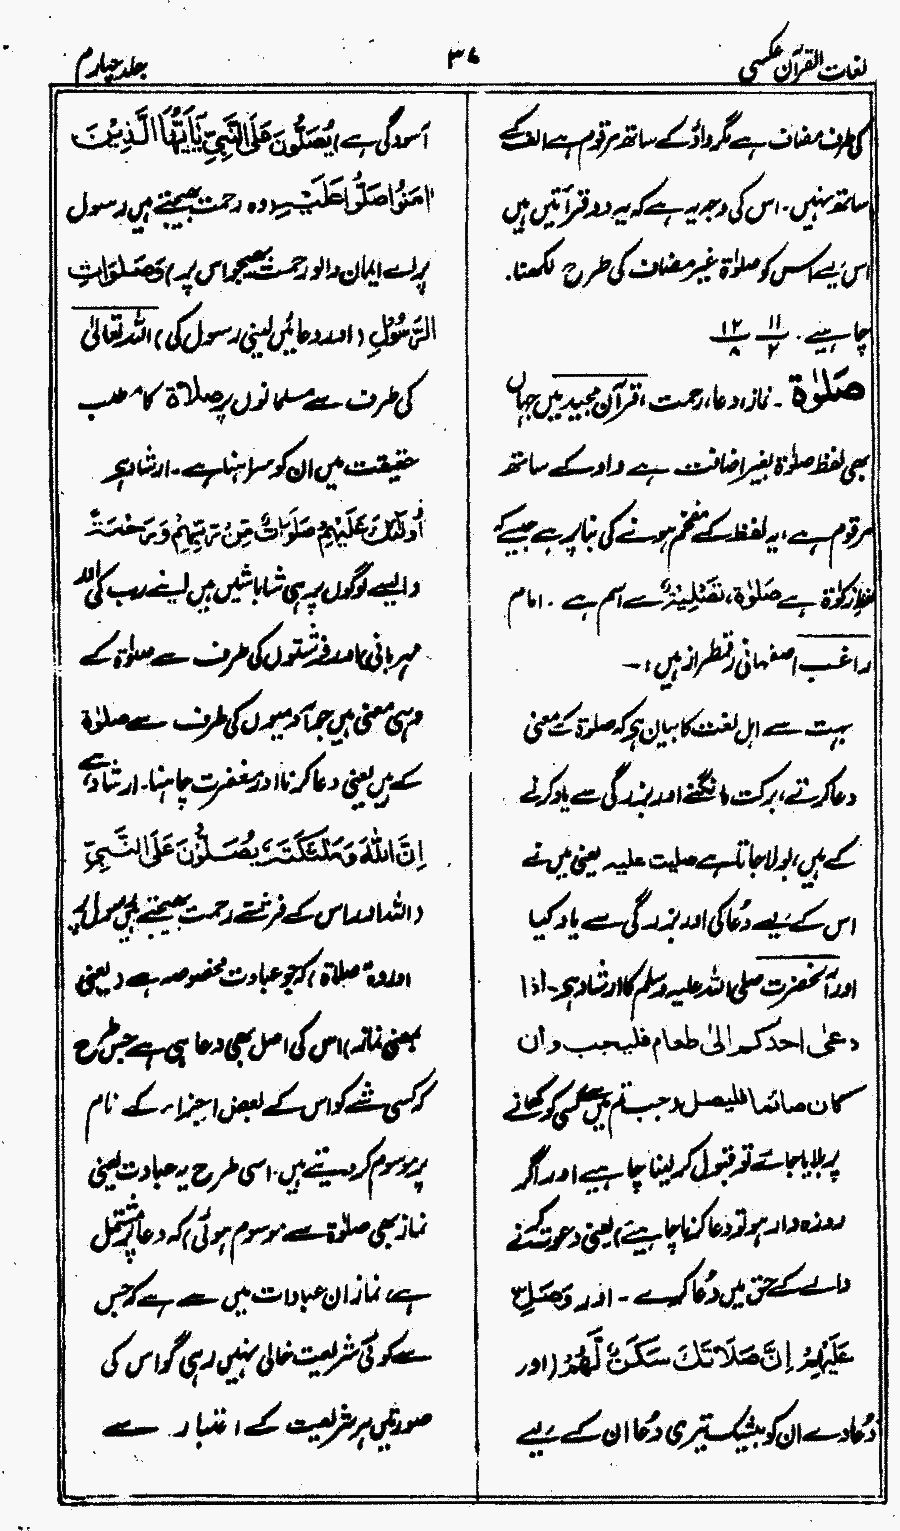 لغات القرآن عکسی
۳۷
جلد چہارم
کی طرف مضاف ہے مگر واؤ کے ساتھ مرقوم ہے الف کے
ساتھ نہیں۔ اس کی وجہ یہ ہے کہ یہ دو قرأتیں ہیں
اس لیے اس کو صلوٰۃ غیر مضاف کی طرح لکھنا۔
چاہیے۔ ۱۱/۲ ۱۲/۸
صَلوٰۃ ۔ نماز، دعا، رحمت، قرآن مجید میں جہاں
بھی لفظ صلوٰۃ بغیر اضافت ہے واو کے ساتھ
مرقوم ہے، یہ لفظ کے مفخم ہونے کی بنا پر ہے جیسے کہ
لفظ زکوٰۃ ہے صَلوٰۃ، تَصْلِیَۃٌ سے اسم ہے ۔ امام
راغب اصفہانی رقمطراز ہیں :۔
بہت سے اہل لغت کا بیان ہے کہ صلوۃ کے معنی
دعا کرنے، برکت مانگنے اور بزرگی سے یاد کرنے
کے ہیں، بولا جاتا ہے صلیت علیہ یعنی میں نے
اس کے لیے دُعا کی اور بزرگی سے یاد کیا
اور آنحضرت صلی اللہ علیہ وسلم کا ارشاد ہے۔ اذا
دعی احدکم الیٰ طعام فلیجب وان
کان صائما فلیصل (جب تم میں سے کسی کو کھانے
پر بلایا جائے تو قبول کر لینا چاہیے اور اگر
روزہ دار ہو تو دعا کرنا چاہیے) یعنی دعوت کرنے
والے کے حق میں دُعا کرے ۔ اور وَصَلِّ
عَلَیْہِمْ اِنَّ صَلَاتَکَ سَکَنٌ لَّہُمْ (اور
دُعا دے ان کو بیشک تیری دُعا ان کے لیے
آسودگی ہے) یُصَلُّوْنَ عَلَی النَّبِیِّ یٰٓاَیُّھَا الَّذِیْنَ
اٰمَنُوْا صَلُّوْا عَلَیْہِ (وہ رحمت بھیجتے ہیں رسول
پر اے ایمان والو رحمت بھیجو اس پر) وَصَلَوَاتِ
الرَّسُوْلِ (اور دعائیں لینی رسول کی) اللہ تعالیٰ
کی طرف سے مسلمانوں پر صلاۃ کا مطلب
حقیقت میں ان کو سراہنا ہے۔ ارشاد ہے
اُولٰٓئِکَ عَلَیْہِمْ صَلَوَاتٌ مِّنْ رَّبِّہِمْ وَرَحْمَۃٌ
(ایسے لوگوں پر ہی شاباشیں ہیں اپنے رب کی اور
مہربانی) اور فرشتوں کی طرف سے صلوٰۃ کے
وہی معنی ہیں جو آدمیوں کی طرف سے صلوٰۃ
کے ہیں یعنی دعا کرنا اور مغفرت چاہنا۔ ارشاد ہے
اِنَّ اللّٰہَ وَمَلٰٓئِکَتَہٗ یُصَلُّوْنَ عَلَی النَّبِیِّ
(اللہ اور اس کے فرشتے رحمت بھیجتے ہیں رسول پر)
اور وہ صلاۃ) کہ جو عبادت مخصوصہ ہے (یعنی
بمعنی نماز) اس کی اصل بھی دعا ہی ہے جس طرح
کہ کسی شے کو اس کے بعض اجزاء کے نام
پر موسوم کر دیتے ہیں۔ اسی طرح یہ عبادت یعنی
نماز بھی صلوٰۃ سے موسوم ہوئی) کہ دعا پر مشتمل
ہے، نماز ان عبادات میں سے ہے کہ جس
سے کوئی شریعت خالی نہیں رہی گو اس کی
صورتیں ہر شریعت کے اعتبار سے